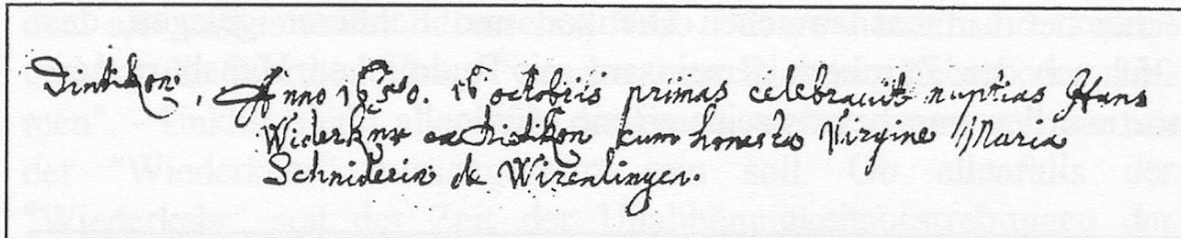 Dintikon, Anno 1650. 16 octobris primas celebravit nuptias Hans
Widerker ex Dietikon cum honesta Virgine Maria
Schniderin de Wirenlingen.